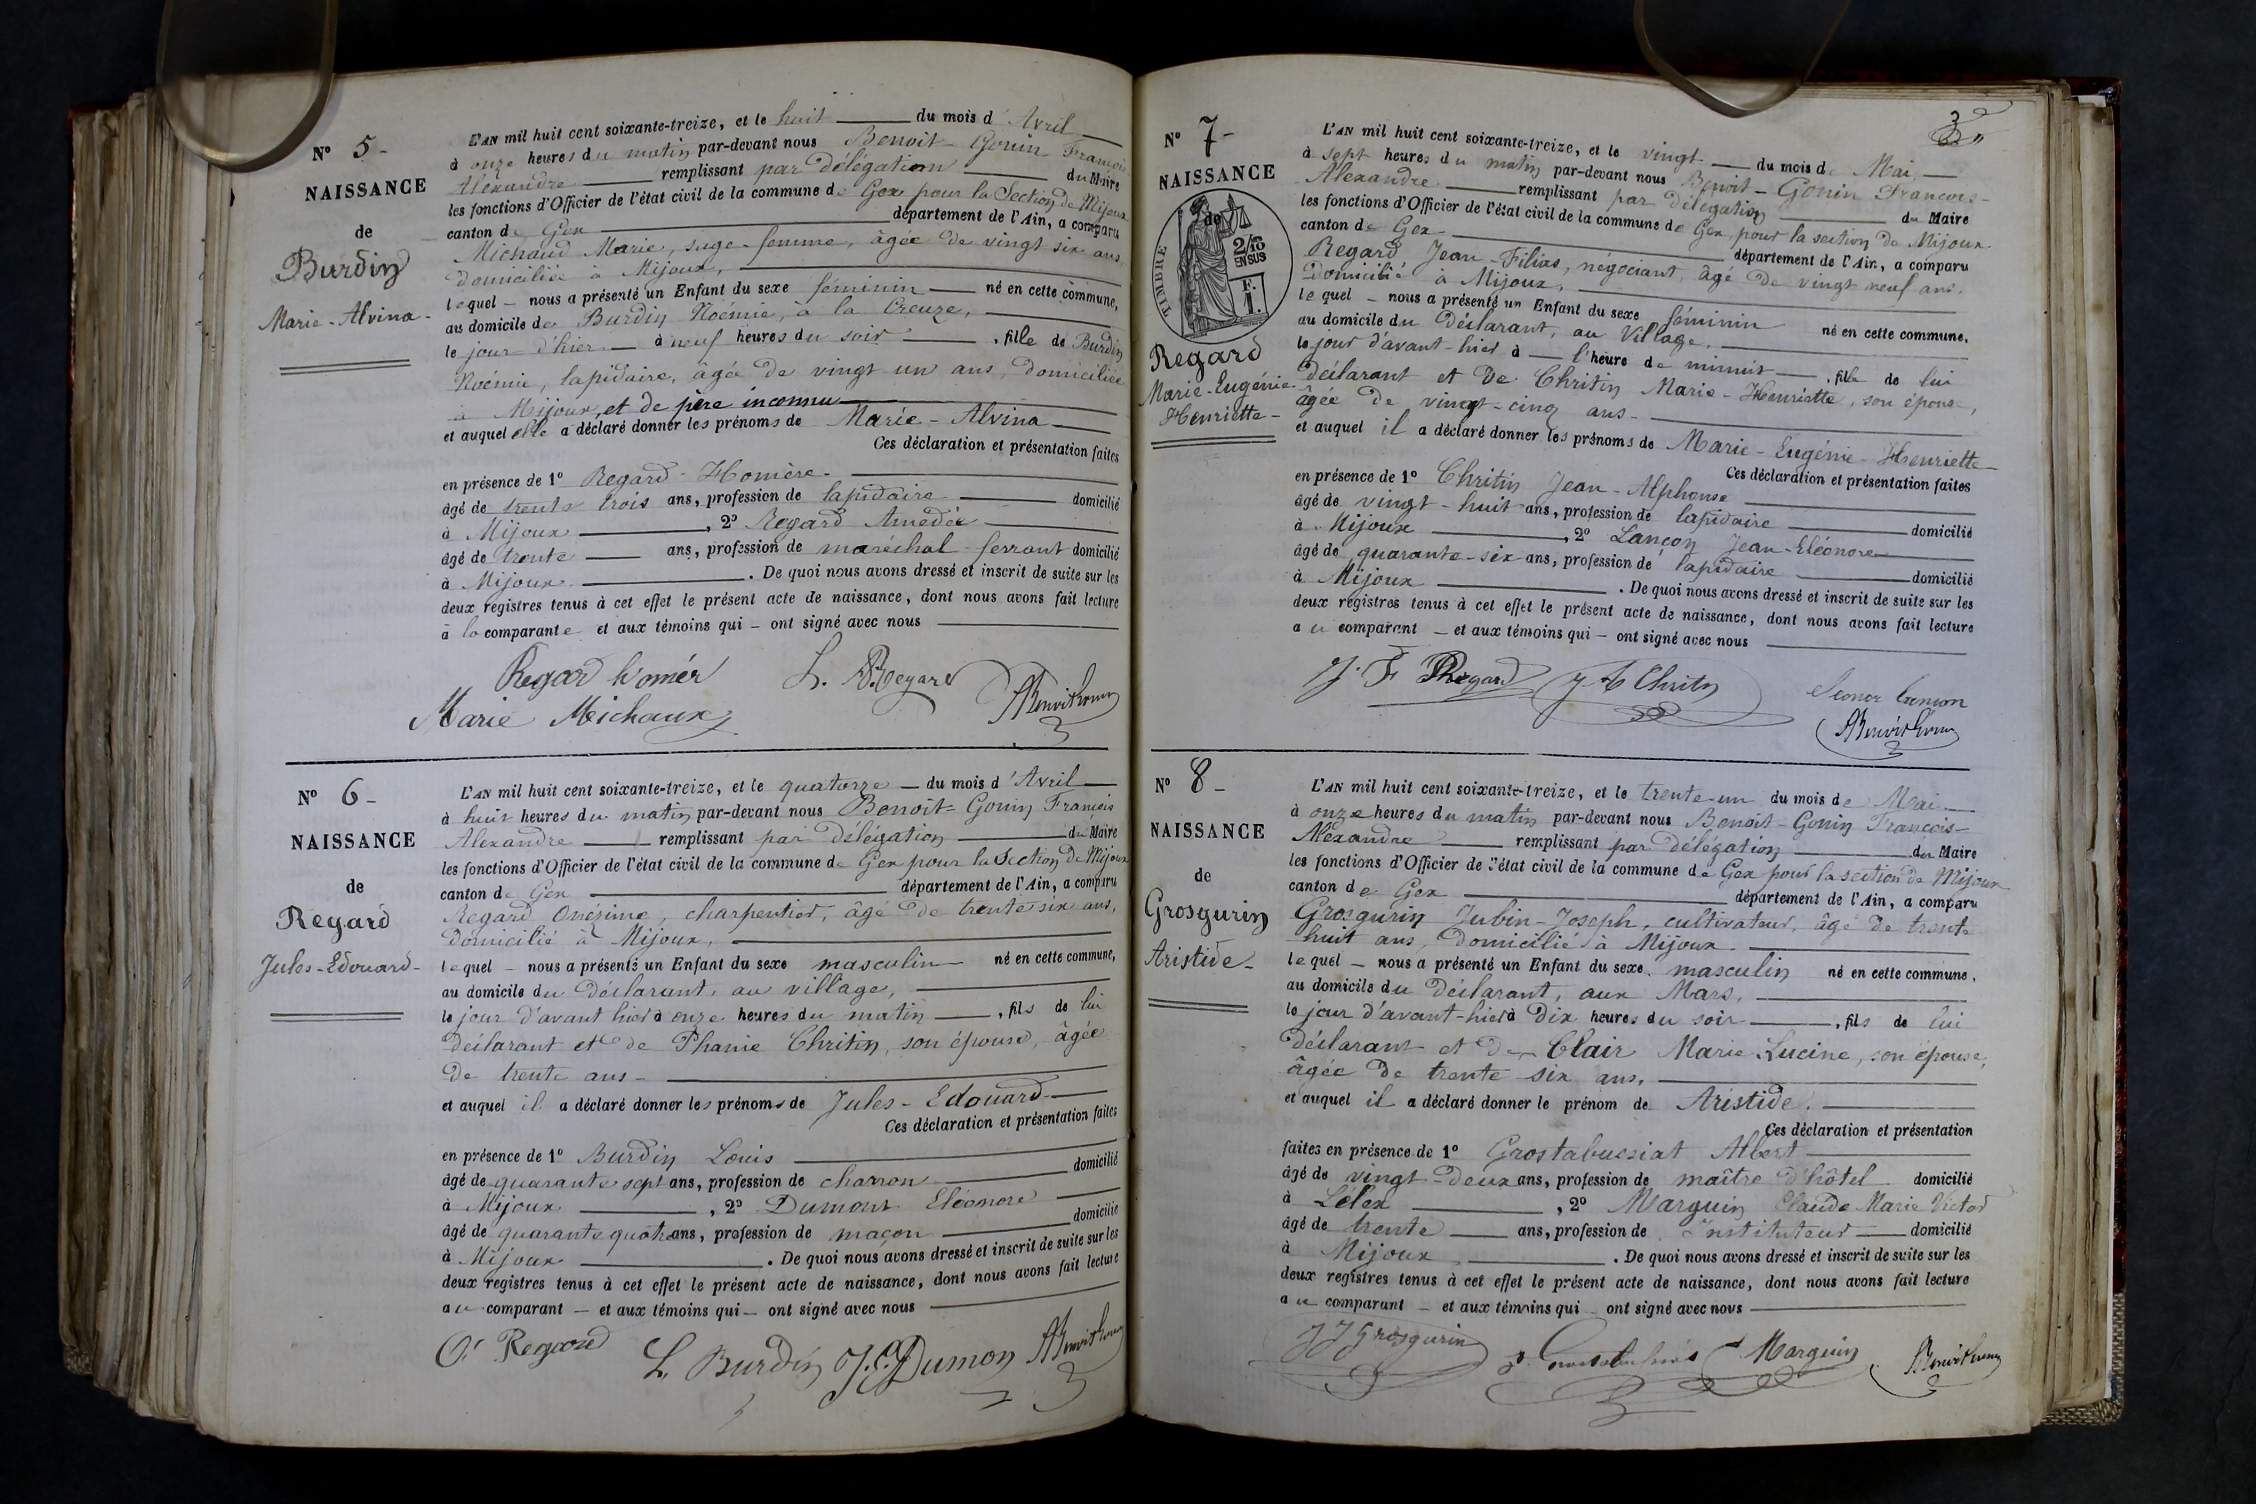 N° 5-
NAISSANCE
de
Burdin
Marie-Alvina-
L'AN mil huit cent soixante-treize, et le huit du mois d'Avril
à onze heures du matin par-devant nous Benoit-Gonin François
Alexandre remplissant par délégation du Maire
les fonctions d'Officier de l'état civil de la commune de Gex pour la Section de Mijoux
canton de Gex département de l'Ain, a comparu
Michaud Marie, sage-femme, âgée de vingt six ans
domiciliée à Mijoux,
lequel – nous a présenté un Enfant du sexe féminin né en cette commune,
au domicile de Burdin Noémie, à la Creuze,
le jour d'hier à neuf heures du soir, fille de Burdin
Noémie, lapidaire, âgée de vingt un ans, domiciliée
à Mijoux, et de père inconnu
et auquel elle a déclaré donner les prénoms de Marie-Alvina
Ces déclaration et présentation faites
en présence de 1° Regard Homère-
âgé de trente trois ans, profession de lapidaire domicilié
à Mijoux, 2° Regard Amédée
âgé de trente ans, profession de maréchal-ferrant domicilié
à Mijoux. De quoi nous avons dressé et inscrit de suite sur les
deux registres tenus à cet effet le présent acte de naissance, dont nous avons fait lecture
à la comparante et aux témoins qui – ont signé avec nous
Regard homér L. A Regard ABenoitGonin
Marie Michaux
N° 6-
NAISSANCE
de
Regard
Jules-Edouard-
L'AN mil huit cent soixante-treize, et le quatorze – du mois d'Avril
à huit heures du matin par-devant nous Benoît-Gonin François
Alexandre remplissant par délégation du Maire
les fonctions d'Officier de l'état civil de la commune de Gex pour la Section de Mijoux
canton de Gex département de l'Ain, a comparu
Regard Onézime, charpentier, âgé de trente six ans,
domicilié à Mijoux,
lequel – nous a présenté un Enfant du sexe masculin né en cette commune,
au domicile du déclarant, au village,
le jour d'avant hier à onze heures du matin, fils de lui
déclarant et de Phanie Chritin, son épouse, âgée
de trente ans-
et auquel il a déclaré donner les prénoms de Jules-Edouard-
Ces déclaration et présentation faites
en présence de 1° Burdin Louis
âgé de quarante sept ans, profession de charron domicilié
à Mijoux, 2° Dumont Eléonore
âgé de quarante quatre ans, profession de maçon domicilié
à Mijoux. De quoi nous avons dressé et inscrit de suite sur les
deux registres tenus à cet effet le présent acte de naissance, dont nous avons fait lecture
au comparant – et aux témoins qui – ont signé avec nous
O. Regard L. Burdin J.E. Dumon ABenoitGonin
3
N° 7-
NAISSANCE
de
TIMBRE
2/10
EN SUS
F.
1.
Regard
Marie-Eugénie-
Henriette-
L'AN mil huit cent soixante-treize, et le vingt du mois de Mai
à sept heures du matin par-devant nous Benoit-Gonin François-
Alexandre remplissant par délégation du Maire
les fonctions d'Officier de l'état civil de la commune de Gex pour la section de Mijoux
canton de Gex département de l'Ain, a comparu
Regard Jean-Filias, négociant, âgé de vingt neuf ans,
domicilié à Mijoux,
lequel – nous a présenté un Enfant du sexe féminin né en cette commune,
au domicile du déclarant, au Village,
le jour d'avant-hier à l'heure de minuit, fille de lui
déclarant et de Chritin Marie-Henriette, son épouse,
âgée de vingt-cinq ans-
et auquel il a déclaré donner les prénoms de Marie-Eugénie Henriette
Ces déclaration et présentation faites
en présence de 1° Chritin Jean-Alphonse
âgé de vingt-huit ans, profession de lapidaire domicilié
à Mijoux, 2° Lançon Jean-Eléonore
âgé de quarante-six ans, profession de lapidaire domicilié
à Mijoux. De quoi nous avons dressé et inscrit de suite sur les
deux registres tenus à cet effet le présent acte de naissance, dont nous avons fait lecture
au comparant – et aux témoins qui – ont signé avec nous
J. F Regard J A Chritin
ABenoitGonin
N° 8-
NAISSANCE
de
Grosgurin
Aristide-
L'AN mil huit cent soixante-treize, et le trente-un du mois de Mai
à onze heures du matin par-devant nous Benoit-Gonin François-
Alexandre remplissant par délégation du Maire
les fonctions d'Officier de l'état civil de la commune de Gex pour la section de Mijoux
canton de Gex département de l'Ain, a comparu
Grosgurin Jubin-Joseph, cultivateur, âgé de trente
huit ans, domicilié à Mijoux
lequel – nous a présenté un Enfant du sexe masculin né en cette commune,
au domicile du déclarant, aux Mars,
le jour d'avant-hier à dix heures du soir, fils de lui
déclarant et de Clair Marie Lucine, son épouse,
âgée de trente six ans,
et auquel il a déclaré donner le prénom de Aristide.
Ces déclaration et présentation
faites en présence de 1° Grostabussiat Albert
âgé de vingt-deux ans, profession de maître d'hôtel domicilié
à Lélex, 2° Marguin Claude Marie Victor
âgé de trente ans, profession de Instituteur domicilié
à Mijoux. De quoi nous avons dressé et inscrit de suite sur les
deux registres tenus à cet effet le présent acte de naissance, dont nous avons fait lecture
au comparant – et aux témoins qui ont signé avec nous
J J Grosgurin Marguin ABenoitGonin